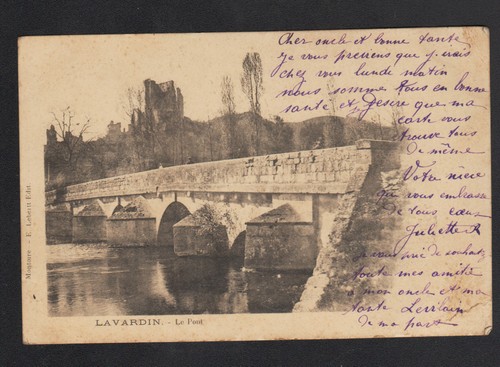 Cher oncle et bonne tante
Je vous previens que j'irais
chez vous lundi matin
nous somme tous en bonne
santé et Desire que ma
carte vous
trouve tous
de même
Votre niece
qui vous embrasse
de tous cœur
Juliette R
vous de
toute mes amitié
a mon oncle et ma
tante
de ma part
LAVARDIN. - Le Pont